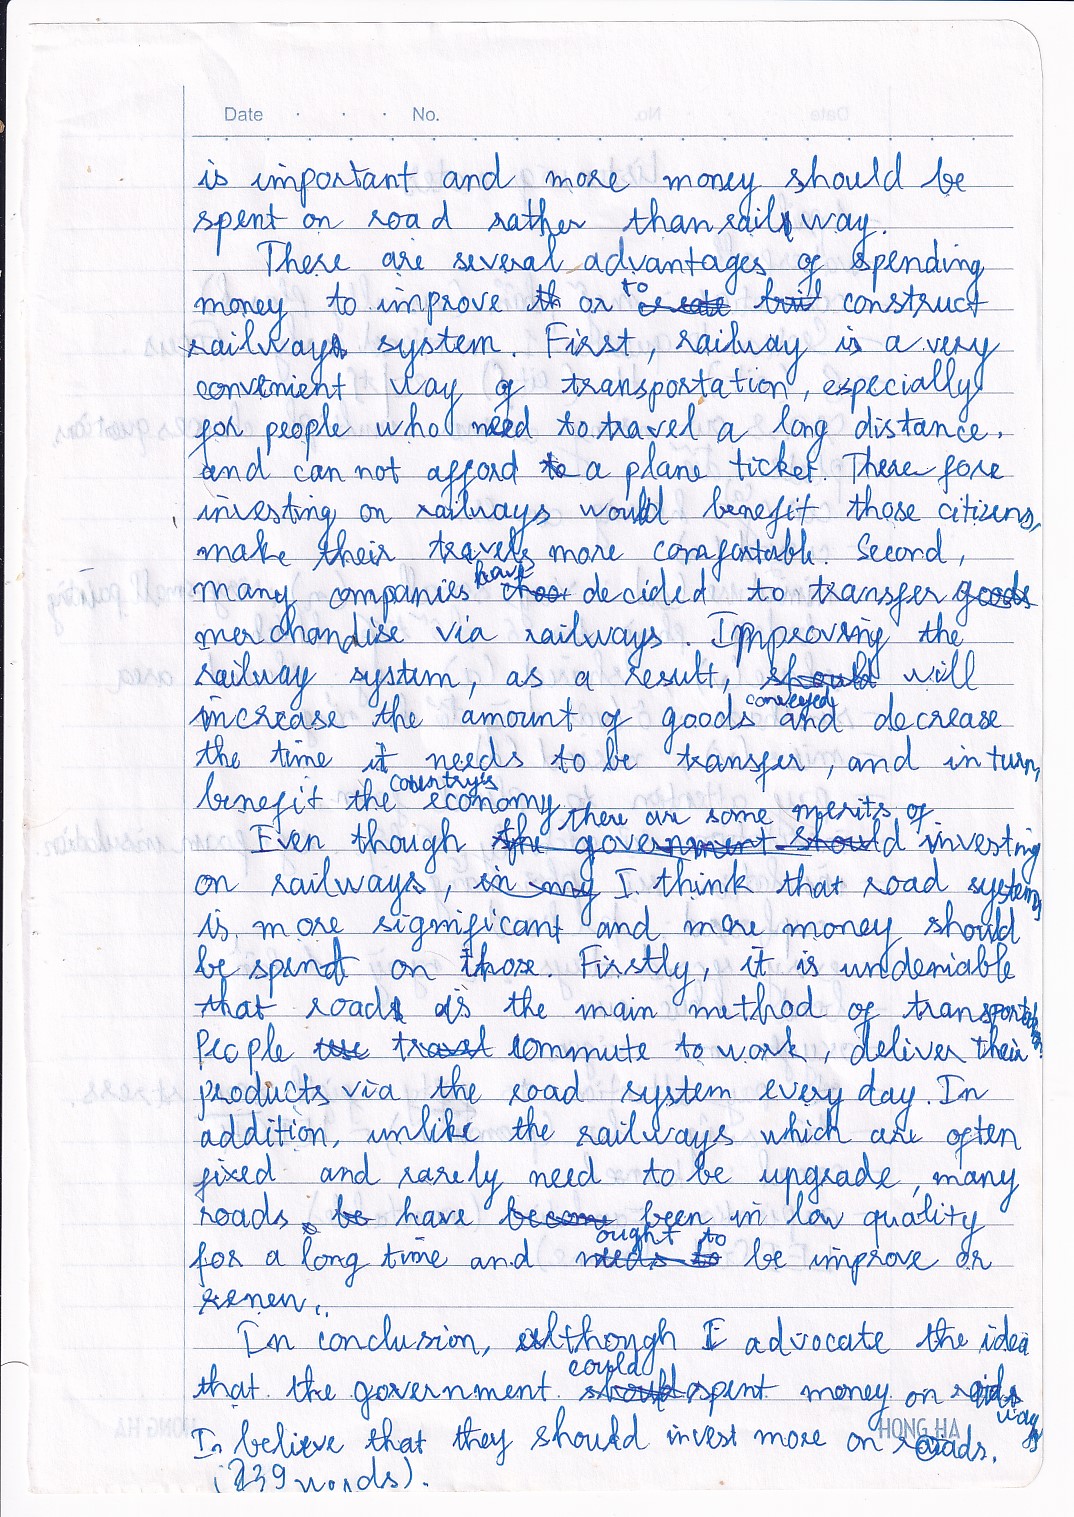 Date No.
is important and more money should be
spent on road rather than railway.
There are several advantages of spending
money to improve or to construct
railways system. First, railway is a very
convenient way of transportation, especially
for people who need to travel a long distance.
and can not afford a plane ticket. There fore
investing on railways would benefit those citizens,
make their travels more comfortable. Second,
many companies have decided to transfer goods
merchandise via railways. Improving the
railway system, as a result, will
increase the amount of goods conveyed and decrease
the time it needs to be transfer, and in turn,
benefit the country's economy.
Even though there are some merits of investing
on railways, I think that road systems
is more significant and more money should
be spend on those. Firstly, it is undeniable
that road is the main method of transportation.
People commute to work, deliver their
products via the road system every day. In
addition, unlike the railways which are often
fixed and rarely need to be upgrade, many
roads have been in low quality
for a long time and ought to be improve or
renew.
In conclusion, although I advocate the idea
that the government could spent money on railways
I believe that they should invest more on roads.
(239 words).
HONG HA